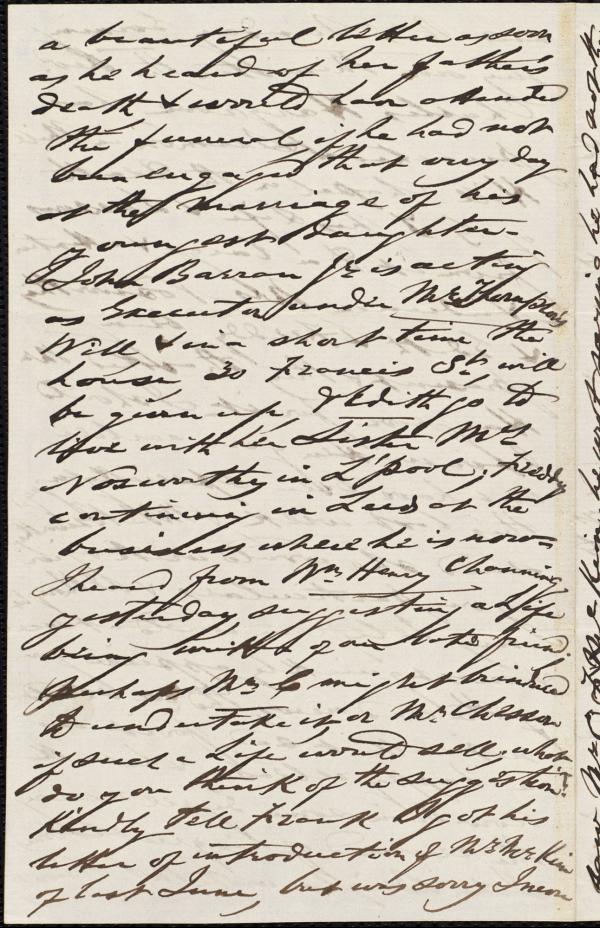 a beautiful letter as soon
as he heard of her father's
death & would have attended
the funeral, if he had not
been engaged that very day
at the marriage of his
youngest daughter -
John Barran Jr. is acting
as Executor under Mr. Thompson's
Will & in a short time the
house 30 Francis St. will
be given up & Edith go to
live with her Sister Mrs.
Nosworthy in L'pool; Freddy
continuing in Leeds at the
business where he is now =
I heard from Wm. Henry Channing
yesterday suggesting a Life
being written of our late friend.
Perhaps Mr. C might be induced
to undertake it, or Mr. Chesson
if such a Life would sell; what
do you think of the suggestion?
Kindly tell Frank I got his
letter of introduction of Mr. McKim
of last June, but was sorry I never
saw Mr. McKim, he just saying he had not